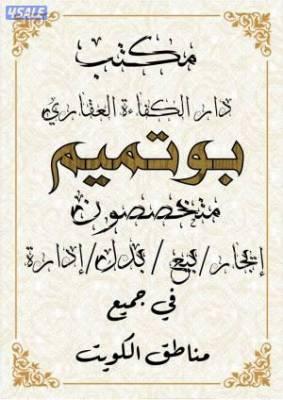 4SALE
مكتب
دار الكفاءة العقاري
بوتميم
متخصصون
إيجار/بيع/بدل/إدارة
في جميع
مناطق الكويت